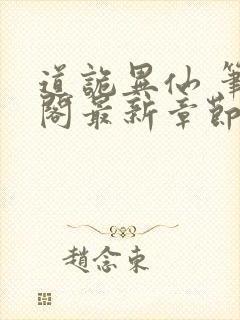 道詭異仙 筆
閣最新章節
趙念東